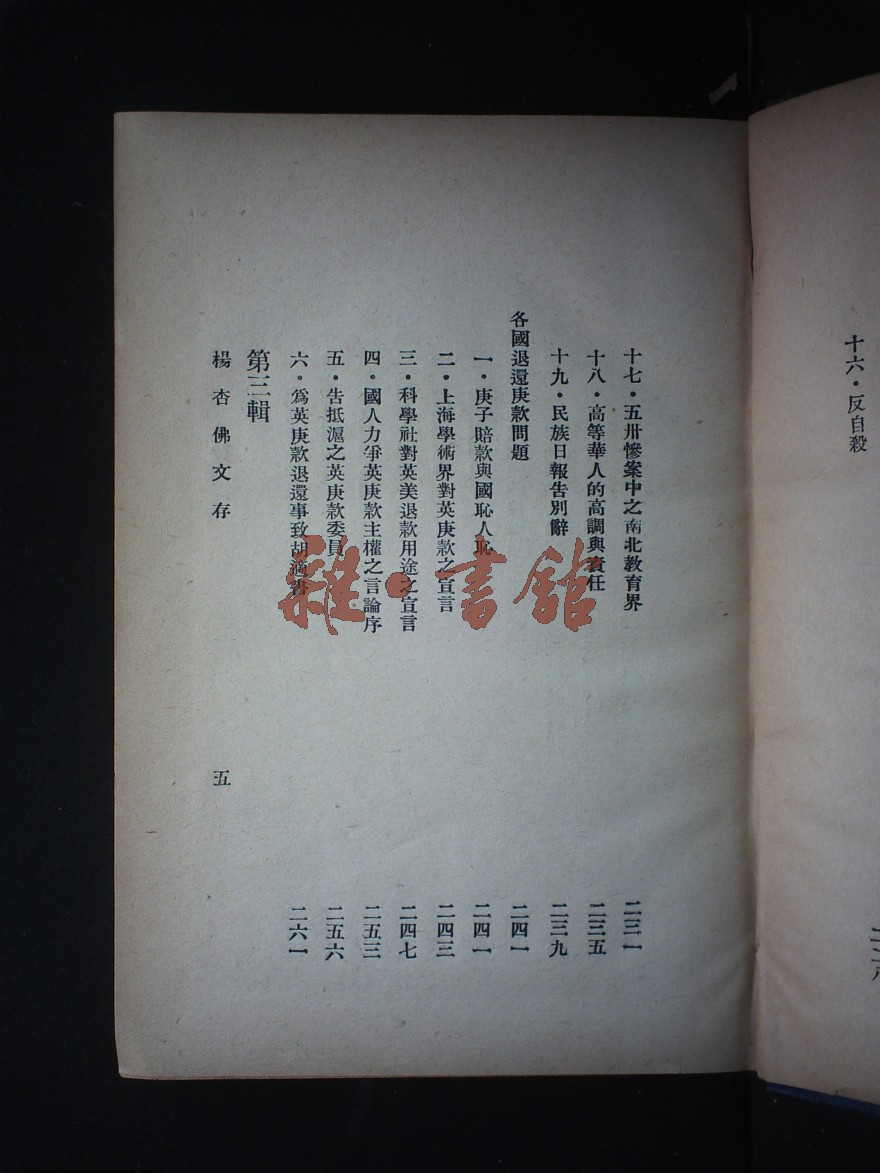 十六・反自殺
十七・五卅慘案中之南北教育界 二三一
十八・高等華人的高調與責任 二三五
十九・民族日報告別辭 二三九
各國退還庚款問題 二四一
一・庚子賠款與國恥人恥 二四一
二・上海學術界對英庚款之宣言 二四三
三・科學社對英美退款用途之宣言 二四七
四・國人力爭英庚款主權之言論序 二五三
五・告抵滬之英庚款委員 二五六
六・爲英庚款退還事致胡適書 二六一
第三輯
楊杏佛文存 五
雜・書館